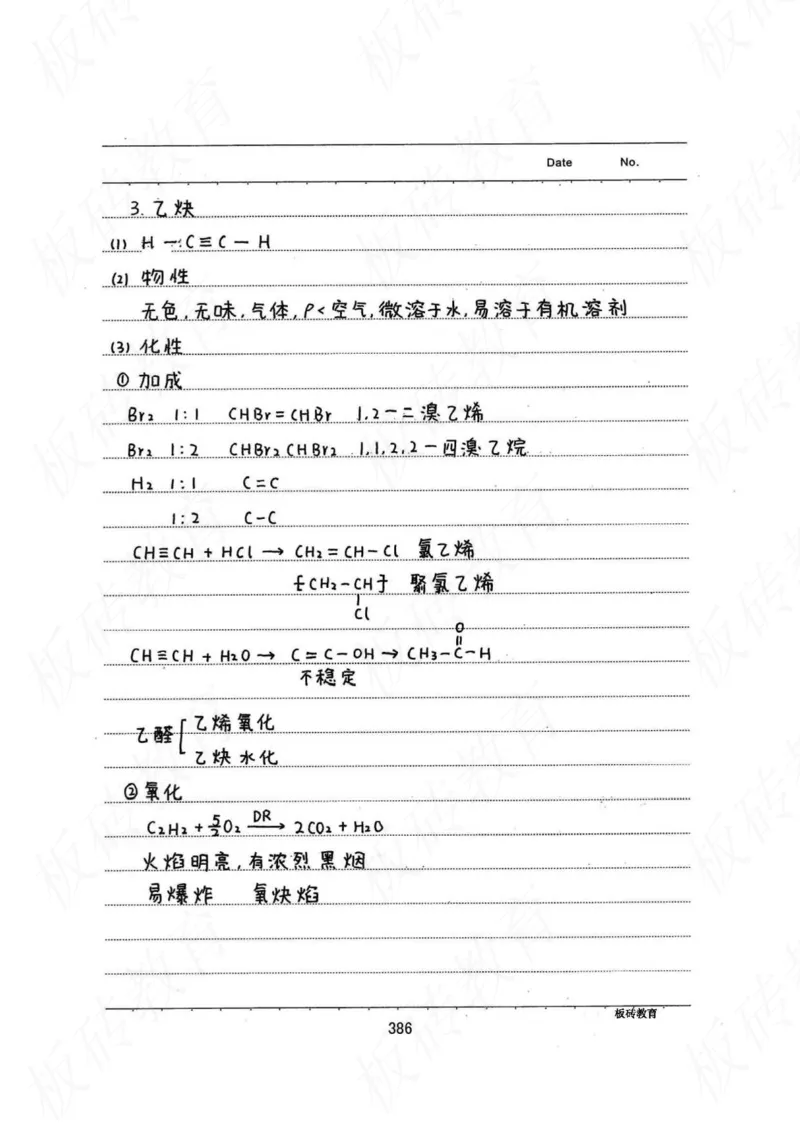 Date No.
3. 乙炔
(1) H—C≡C—H
(2) 物性
无色,无味,气体,ρ<空气,微溶于水,易溶于有机溶剂
(3) 化性
① 加成
Br₂ 1:1 CHBr=CHBr 1,2-二溴乙烯
Br₂ 1:2 CHBr₂CHBr₂ 1,1,2,2-四溴乙烷
H₂ 1:1 C=C
1:2 C-C
CH≡CH + HCl → CH₂=CH-Cl 氯乙烯
[CH₂-CH] 聚氯乙烯
Cl
O
CH≡CH + H₂O → C=C-OH → CH₃-C-H
不稳定
乙醛 乙烯氧化
乙炔水化
② 氧化
C₂H₂ + 5/2 O₂ DR→ 2CO₂ + H₂O
火焰明亮,有浓烈黑烟
易爆炸 氧炔焰
板砖教育
386